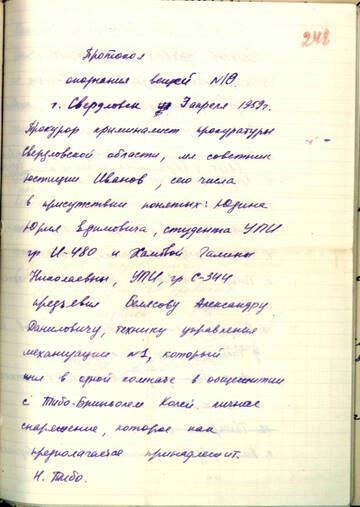 248
Протокол
опознания вещей №10
г. Свердловск 7 апреля 1959г.
Прокурор криминалист прокуратуры
Свердловской области, мл советник
юстиции Иванов, сего числа
в присутствии понятых: Юдина
Юрия Ефимовича, студента УПИ
гр И-480 и Галины
Николаевны, УПИ, гр. С-344
предъявил Белясову Александру
Даниловичу, технику управления
механизации №1, который
жил в одной комнате в общежитии
с Тибо-Бриньолем Колей личное
снаряжение, которое как
предполагается принадлежит.
Н. Тибо.